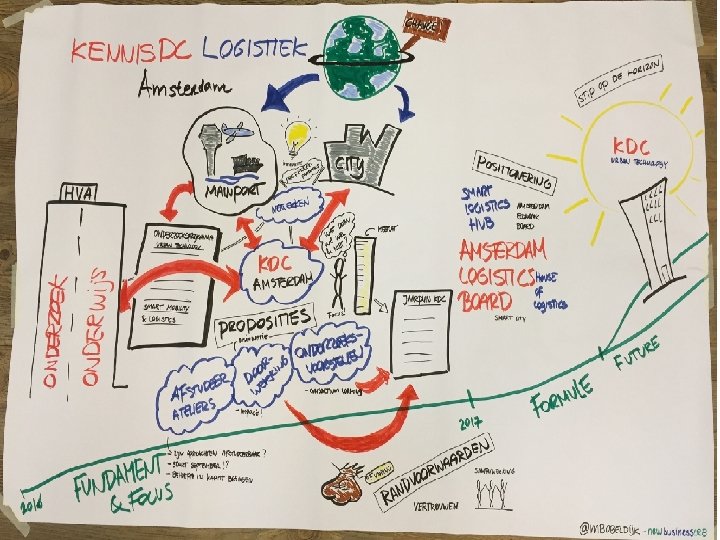 CHANGE
KENNISDC LOGISTIEK
Amsterdam
STIP OP DE HORIZON
KDC
URBAN TECHNOLOGY
MAINPORT
CITY
POSITIONERING
SMART
LOGISTICS
HUB
AMSTERDAM
ECONOMIC
BOARD
AMSTERDAM
LOGISTICS
BOARD
HOUSE
OF
LOGISTICS
SMART CITY
HVA
ONDERZOEK
ONDERWIJS
ONDERZOEKSPROGRAMMA
URBAN TECHNOLOGY
SMART MOBILITY
& LOGISTICS
NETWERKEN
KDC
AMSTERDAM
FOCUS
JAARPLAN KDC
PROPOSITIES
AFSTUDEER
ATELIERS
DOOR-
WERKING
- IMPACT!
ONDERZOEKS-
VOORSTELLEN
FUTURE
FORMULE
2017
FUNDAMENT
& FOCUS
2016
RANDVOORWAARDEN
VERTROUWEN
SAMENWERKING
@MBABELDIJK - newbusiness